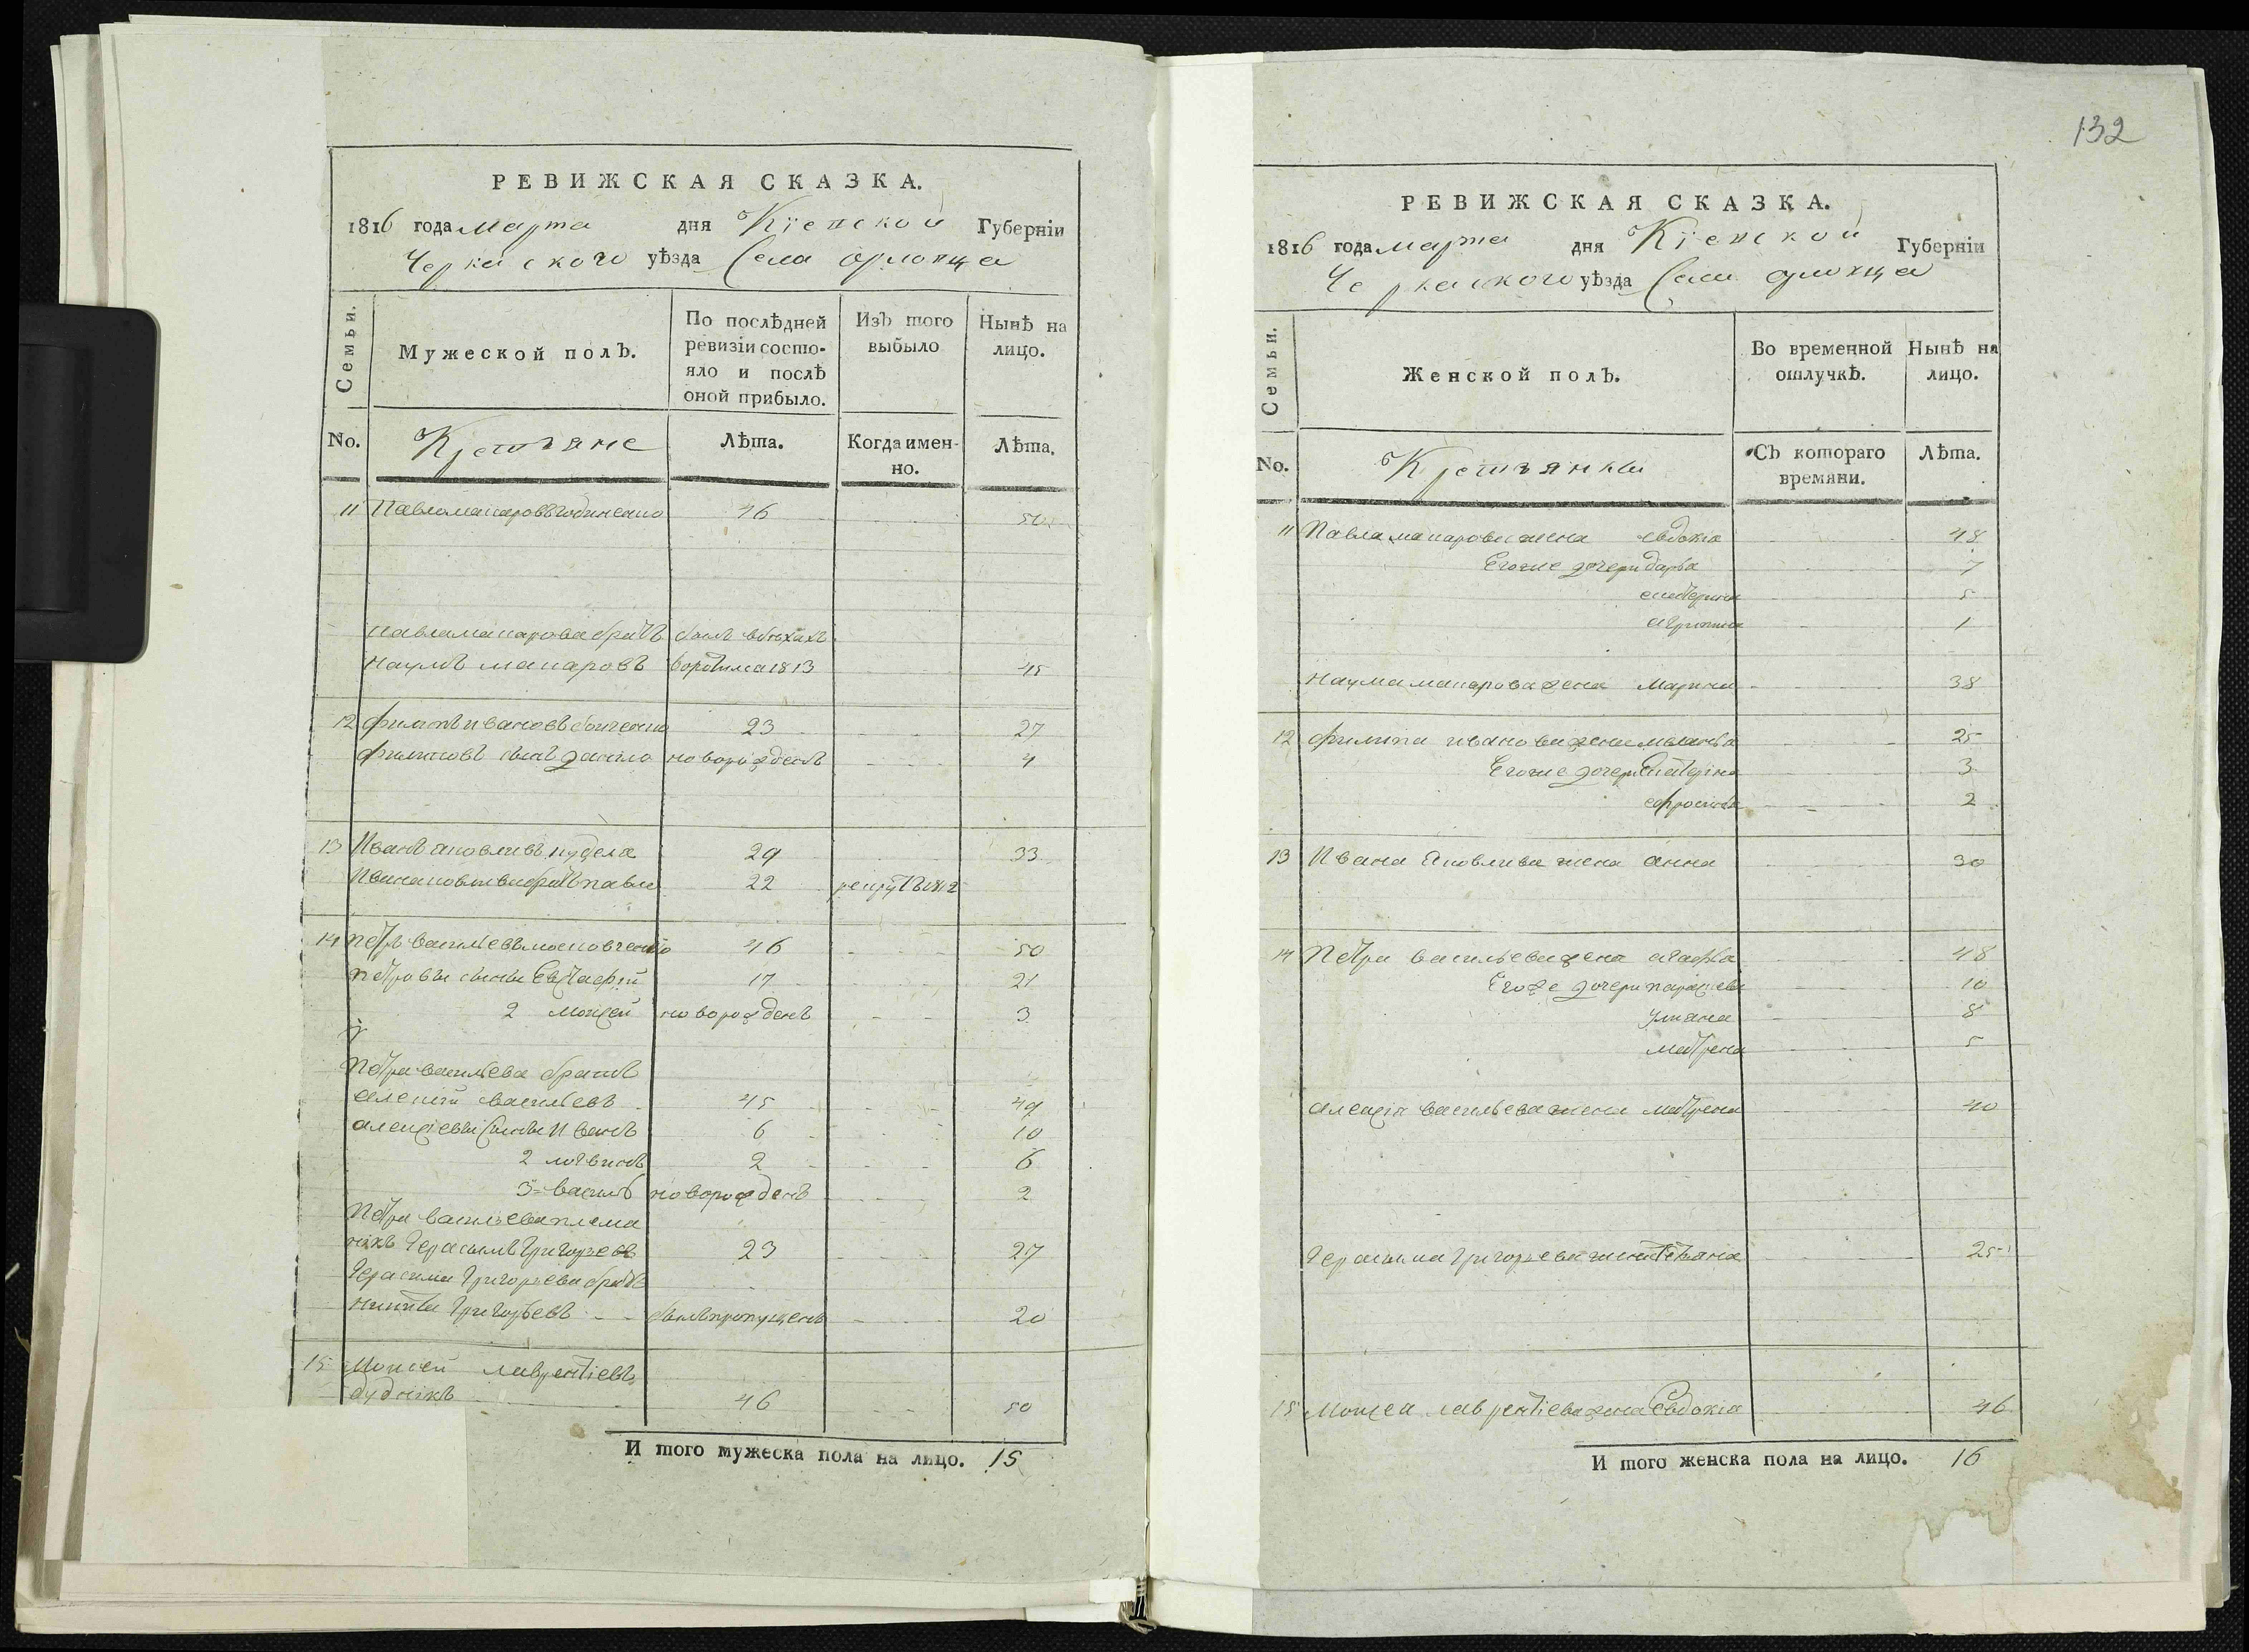 РЕВИЖСКАЯ СКАЗКА.
1816 года марта дня Кіевской Губерніи
Черкаского уѣзда Села орловца
Семьи.
Мужеской полъ.
По послѣдней ревизіи состо-
яло и послѣ
оной прибыло.
Изъ того
выбыло
Нынѣ на
лицо.
No.
Крестяне
Лѣта.
Когда имен-
но.
Лѣта.
11 Павло макаровъ 46 50
павла макарова братъ былъ вбѣгахъ
наумъ макаровъ 1813 45
12 филипъ ивановъ 23 27
филиповъ сынъ данило новорожденъ 4
13 Иванъ яковливъ кудела 29 33
Ивана яковлива братъ павло 22 рекрутъ 1812
14 петръ васильевъ московченко 46 50
петровы сыны Евстафій 17 21
2 моисей новорожденъ 3
Петра васильева братъ
алексій васильевъ 45 49
алексіевы сыны Иванъ 6 10
2 логвинъ 2 6
3 василь новорожденъ 2
Петра васильева племя
нікъ Герасимъ Григорьевъ 23 27
Герасима Григорьева братъ
никита Григорьевъ былъ пропущенъ 20
15 Моисей лаврентіевъ
дудникъ 46 50
И того мужеска пола на лицо. 15
132
РЕВИЖСКАЯ СКАЗКА.
1816 года марта дня Кіевской Губерніи
Черкаского уѣзда Села орловца
Семьи.
Женской полъ.
Во временной
отлучкѣ.
Нынѣ на
лицо.
No.
Крестянки
Съ котораго
времяни.
Лѣта.
11 Павла макарова жена евдокіа 48
Егоже дочери дарьа 7
екатерина 5
агрипина 1
Наума макарова жена Марина 38
12 филипа иванова жена меланьа 25
Егоже дочери Екатеріна 3
ефросиньа 2
13 Ивана Яковлива жена анна 30
14 Петра васильева жена агафіа 48
Егоже дочери параскева 10
улиана 8
матрена 5
алексіа васильева жена матрена 40
Герасыма григорьева жена татіана 25
15 Моисея лаврентіева жена Евдокіа 46
И того женска пола на лицо. 16